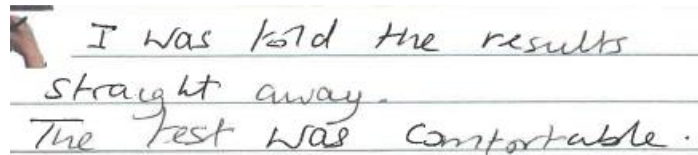 I was told the results
straight away.
The test was comfortable.